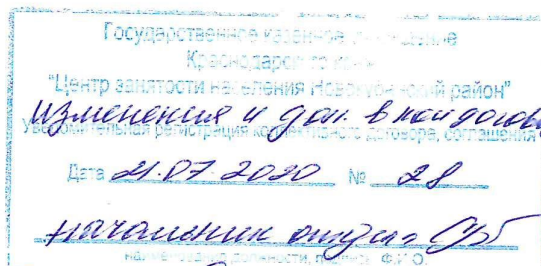 Государственное казенное учреждение
Краснодарского края
"Центр занятости населения Новокубанский район"
Изменения и доп. в кол договор
Уведомительная регистрация коллективного договора, соглашения
Дата 21.07.2020 № 28
начальник отдела
наименование должности, подпись, Ф.И.О.